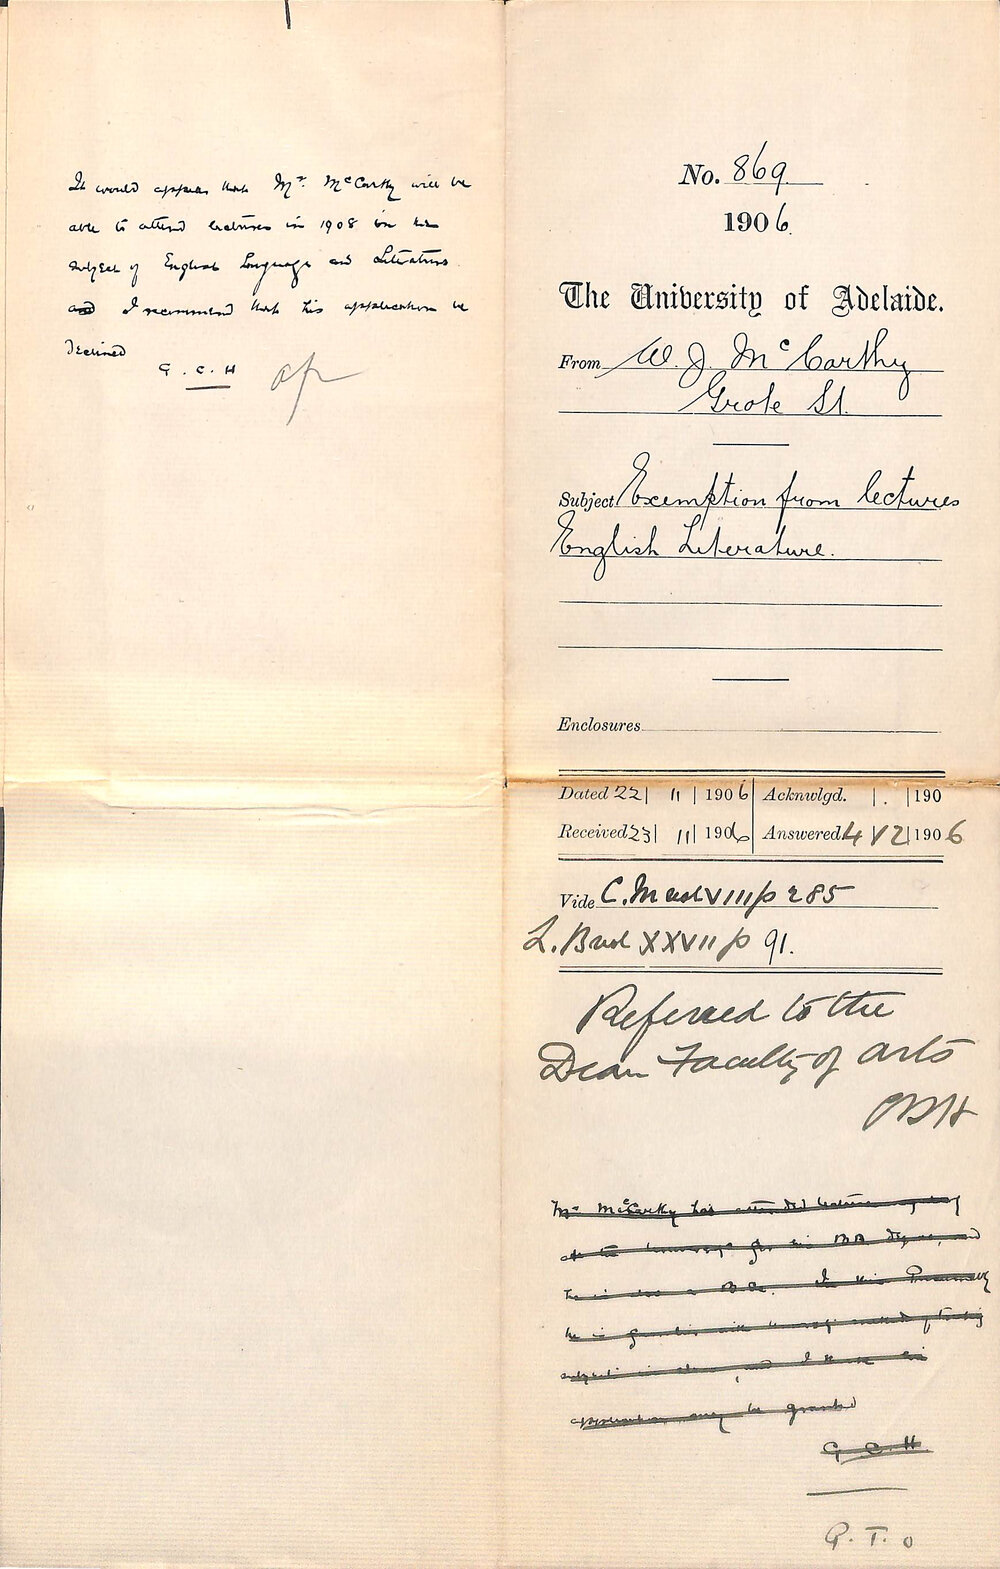 It would appear that Mr. McCarthy will be
able to attend lectures in 1908 in the
subject of English Language and Literature
and I recommend that his application be
declined
G. C. H
No. 869
1906
The University of Adelaide.
From W. J. McCarthy
Grote St.
Subject Exemption from lectures
English Literature.
Enclosures
Dated 22 | 11 | 1906 Acknwlgd. | . | 190
Received 23 | 11 | 1906 Answered 4 | 12 | 1906
Vide C. M VIII p 285
L. XXVII p 91.
Referred to the
Dean Faculty of Arts
Mr McCarthy has attended lectures
at the for his BA degree, and
he is also a B.Sc. In this
he is
subject in and I
application may be granted
G C H
P. T. O